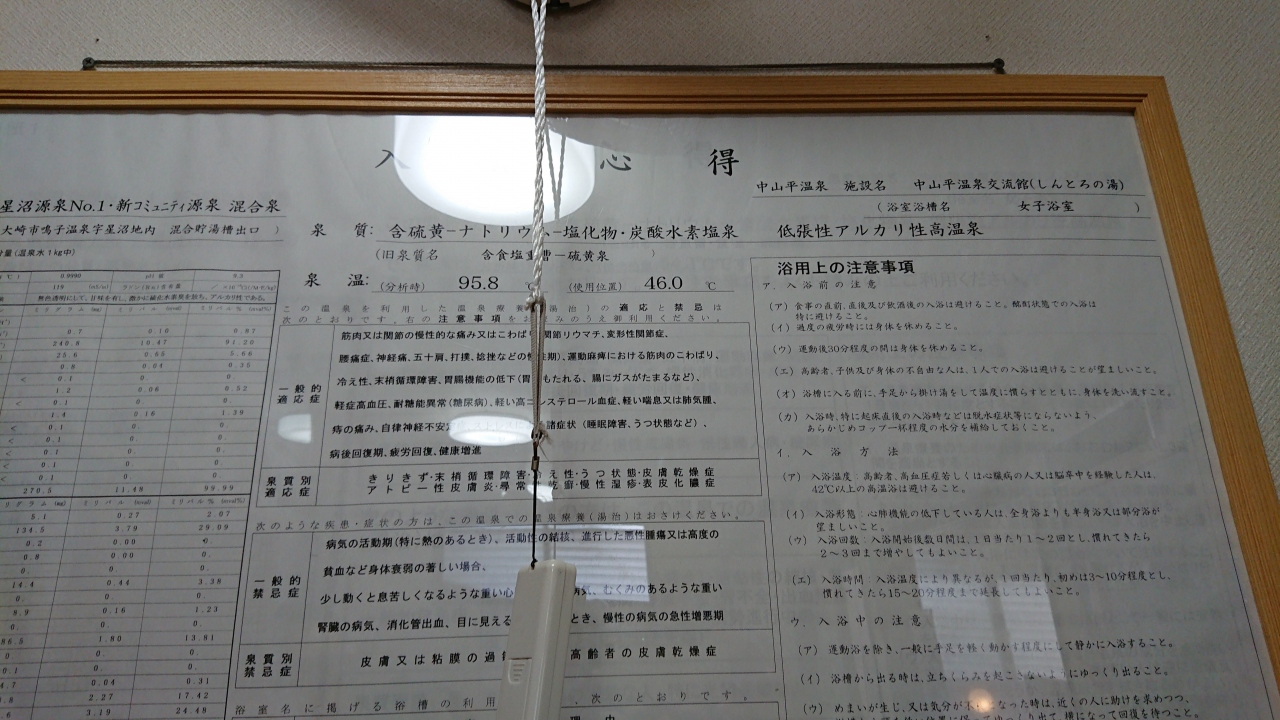 入 心 得
星沼源泉No.1・新コミュニティ源泉 混合泉
大崎市鳴子温泉字星沼地内 混合貯湯槽出口 )
量(温泉水1kg中)
0.9990 pH値
119
無色透明にして、
ミリグラム(mg) ミリバル(mval) ミリバル%(mval%)
0.7 0.10 0.87
240.8 10.47 91.20
25.6 0.65 5.66
0.8 0.04 0.35
< 0.1 0.
1.2 0.06 0.52
< 0.1 0.
1.4 0.16 1.39
< 0.1 0.
< 0.1 0.
< 0.1 0.
< 0.1 0.
270.5 11.48 99.99
リグラム(mg) ミリバル(mval) ミリバル%(mval%)
5.1 0.27 2.07
134.5 3.79 29.09
0.2 0.00 0.
0.8 0.00 0.
0. 0. 0.
14.4 0.44 3.38
0. 0. 0.
8.9 0.16 1.23
0. 0. 0.
86.5 1.80 13.81
0. 0.
0.1 0. 0.
4.7 0.04 0.31
9.8 2.27 17.42
3.19 24.48
泉 質: 含硫黄-ナトリウム-塩化物・炭酸水素塩泉 低張性アルカリ性高温泉
(旧泉質名 含食塩重曹-硫黄泉 )
泉 温: (分析時) 95.8 ℃ (使用位置) 46.0 ℃
この温泉を利用した温泉療養(湯治)の適応と禁忌は
次のとおりです。右の注意事項をお読みのうえ御利用ください。
一般的適応症
筋肉又は関節の慢性的な痛み又はこわばり 関節リウマチ、変形性関節症、
腰痛症、神経痛、五十肩、打撲、捻挫などの慢性期)、運動麻痺における筋肉のこわばり、
冷え性、末梢循環障害、胃腸機能の低下(胃がもたれる、腸にガスがたまるなど)、
軽症高血圧、耐糖能異常(糖尿病)、軽い高コレステロール血症、軽い喘息又は肺気腫、
痔の痛み、自律神経不安定 諸症状(睡眠障害、うつ状態など)、
病後回復期、疲労回復、健康増進
泉質別適応症
きりきず・末梢循環障害・冷え性・うつ状態・皮膚乾燥症
アトピー性皮膚炎・尋常性乾癬・慢性湿疹・表皮化膿症
次のような疾患・症状の方は、この温泉での温泉療養(湯治)はおさけください。
一般的禁忌症
病気の活動期(特に熱のあるとき)、活動性の結核、進行した悪性腫瘍又は高度の
貧血など身体衰弱の著しい場合、
少し動くと息苦しくなるような重い心 病気、むくみのあるような重い
腎臓の病気、消化管出血、目に見える とき、慢性の病気の急性増悪期
泉質別禁忌症
皮膚又は粘膜の過 高齢者の皮膚乾燥症
浴室名に掲げる浴槽の利用 、次のとおりです。
理 由
中山平温泉 施設名 中山平温泉交流館(しんとろの湯)
(浴室浴槽名 女子浴室 )
浴用上の注意事項
ア. 入浴前の注意
(ア) 食事の直前、直後及び飲酒後の入浴は避けること。酩酊状態での入浴は
特に避けること。
(イ) 過度の疲労時には身体を休めること。
(ウ) 運動後30分程度の間は身体を休めること。
(エ) 高齢者、子供及び身体の不自由な人は、1人での入浴は避けることが望ましいこと。
(オ) 浴槽に入る前に、手足から掛け湯をして温度に慣らすとともに、身体を洗い流すこと。
(カ) 入浴時、特に起床直後の入浴時などは脱水症状等にならないよう、
あらかじめコップ一杯程度の水分を補給しておくこと。
イ. 入 浴 方 法
(ア) 入浴温度:高齢者、高血圧症若しくは心臓病の人又は脳卒中を経験した人は、
42℃以上の高温浴は避けること。
(イ) 入浴形態:心肺機能の低下している人は、全身浴よりも半身浴又は部分浴が
望ましいこと。
(ウ) 入浴回数:入浴開始後数日間は、1日当たり1~2回とし、慣れてきたら
2~3回まで増やしてもよいこと。
(エ) 入浴時間:入浴温度により異なるが、1回当たり、初めは3~10分程度とし、
慣れてきたら15~20分程度まで延長してもよいこと。
ウ. 入浴中の注意
(ア) 運動浴を除き、一般に手足を軽く動かす程度にして静かに入浴すること。
(イ) 浴槽から出る時は、立ちくらみを起こさないようにゆっくり出ること。
(ウ) めまいが生じ、又は気分が不良となった時は、近くの人に助けを求めつつ、
横になって回復を待つこと。